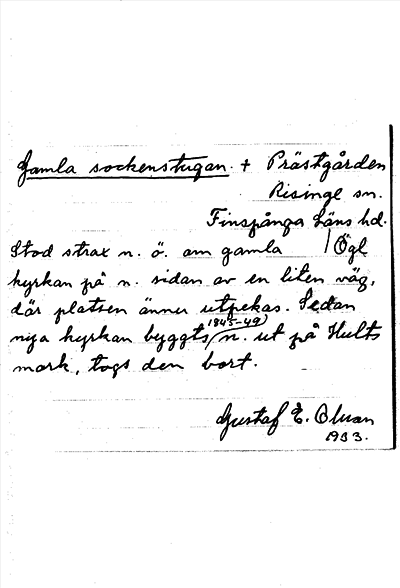 Gamla sockenstugan. + Prästgården
Risinge sn.
Finspånga Läns hd.
Stod strax n. ö. om gamla / Ögl
kyrkan på n. sidan av en liten väg,
där platsen ännu utpekas. Sedan
nya kyrkan byggts (1845-49) n. ut på Hults
mark, togs den bort.
Gustaf E. Olsson
1933.